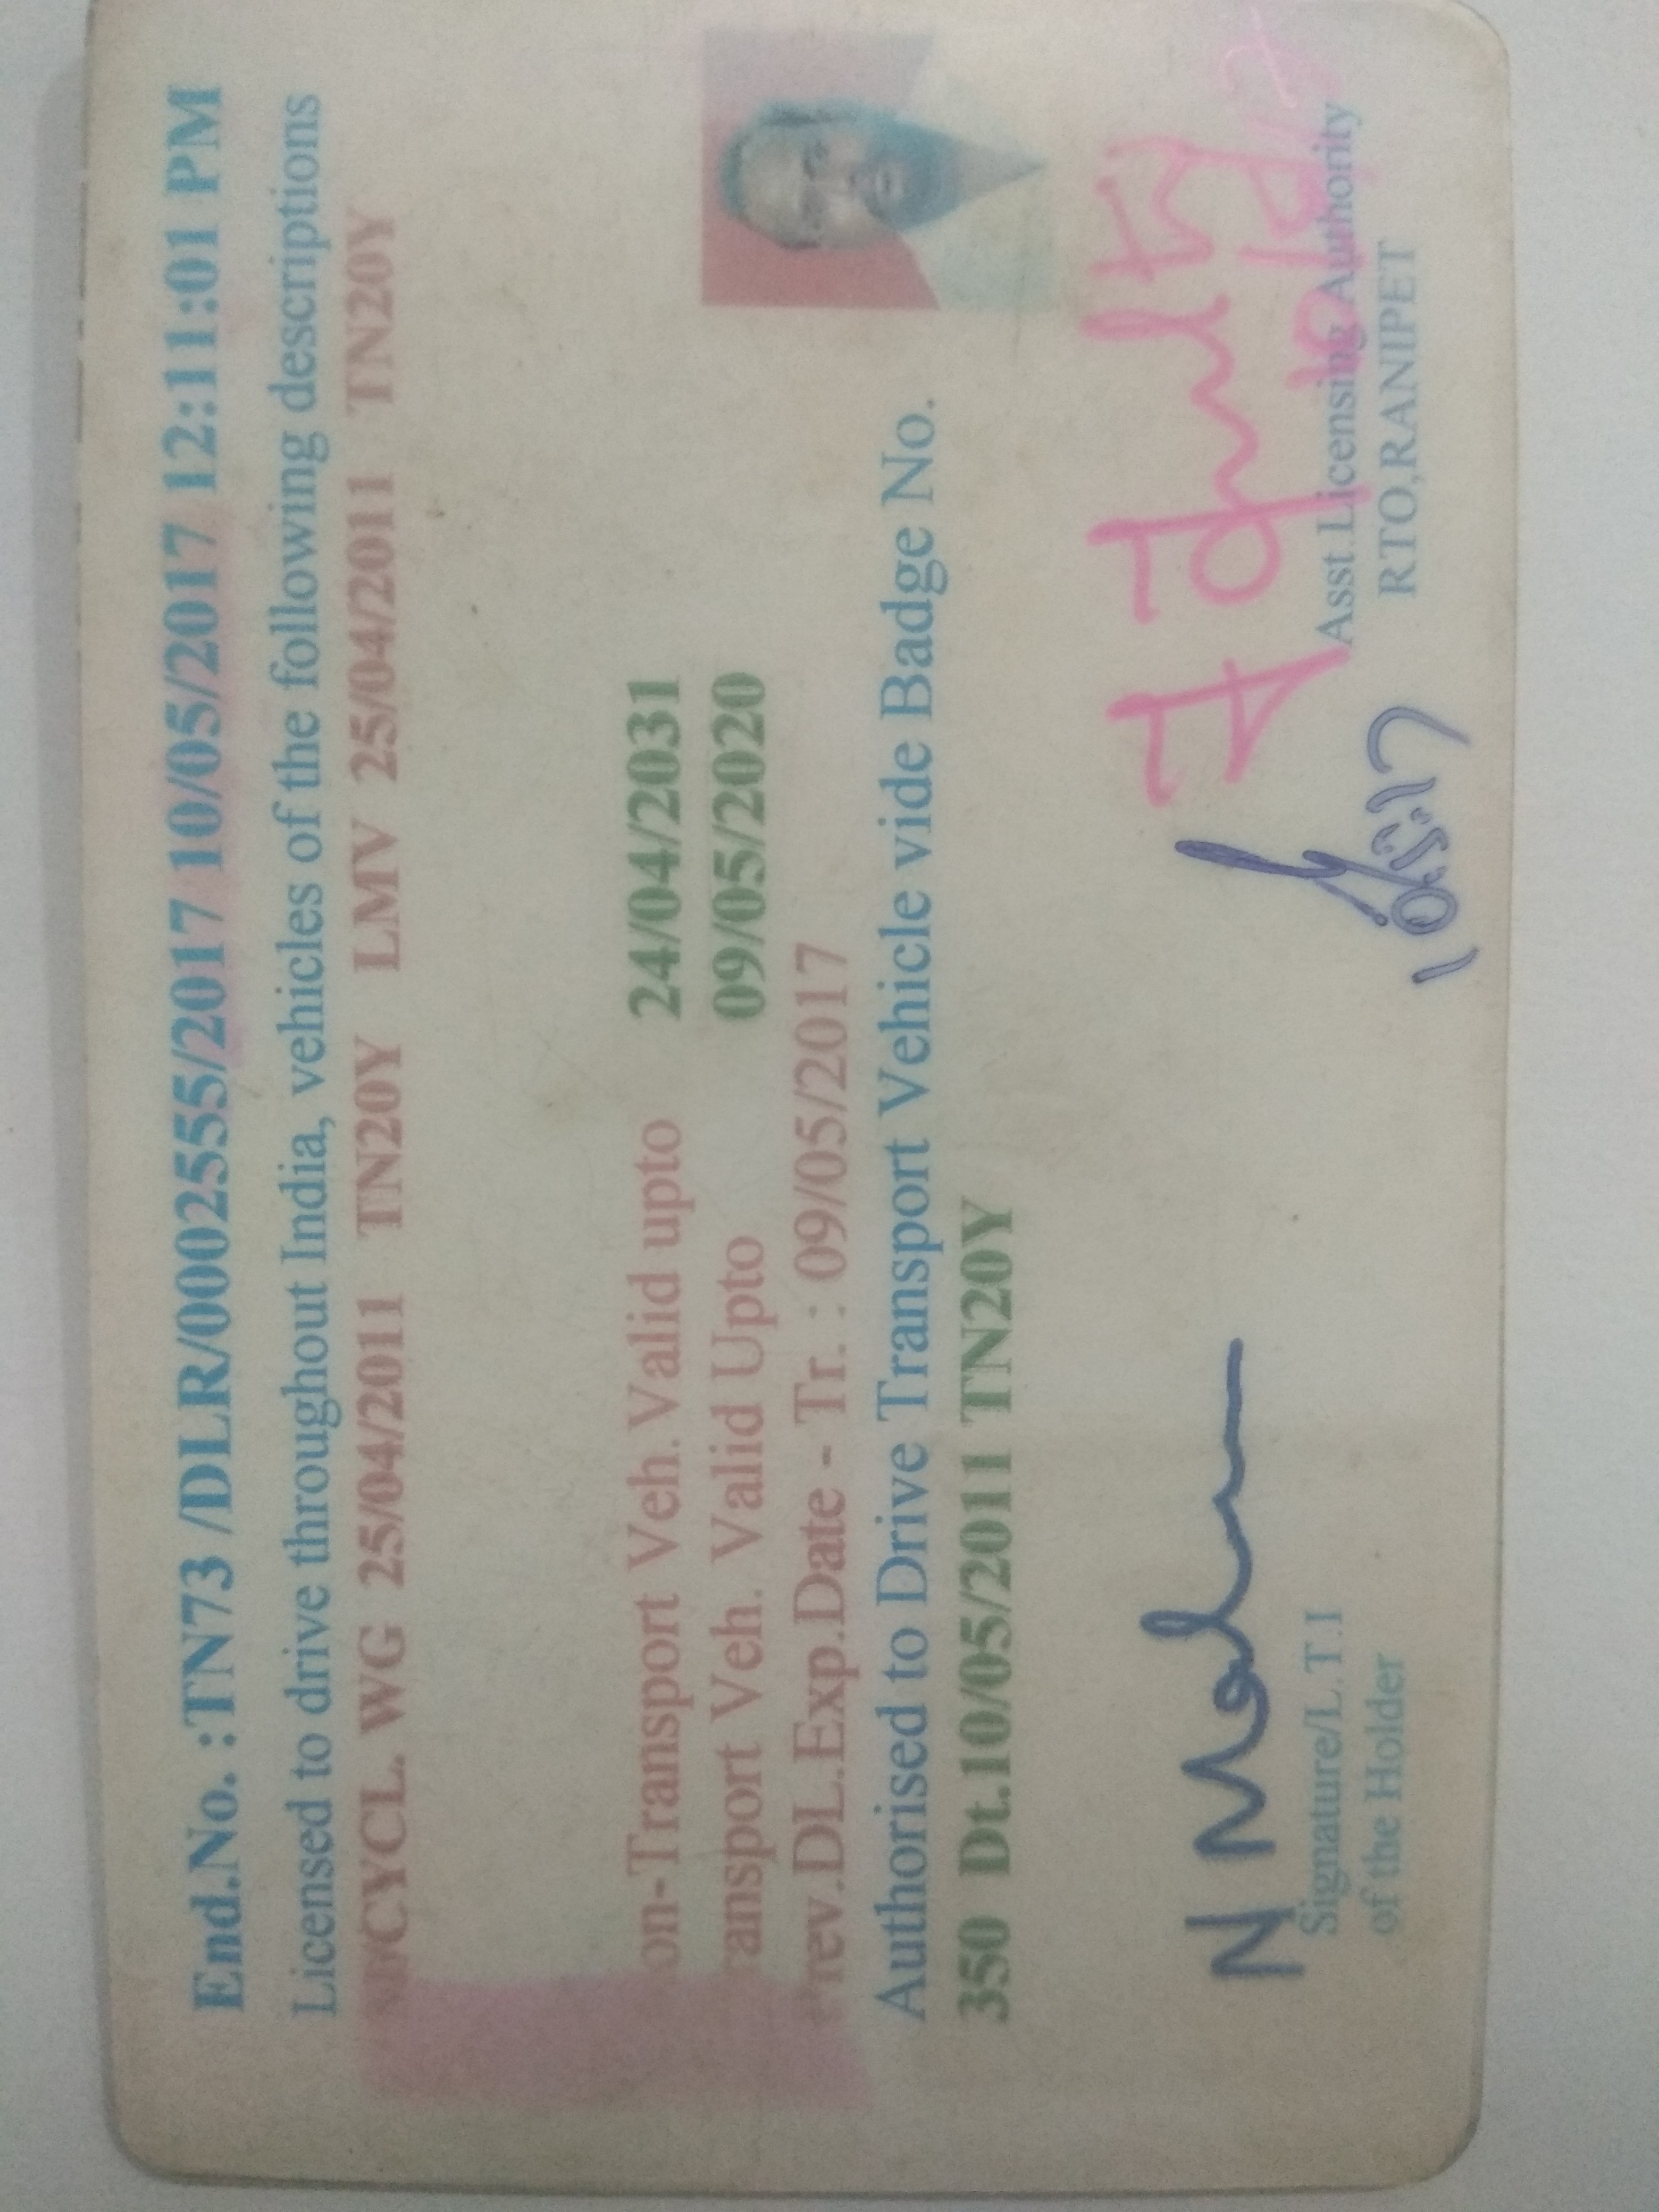 End.No. :TN73 /DLR/0002555/2017 10/05/2017 12:11:01 PM
Licensed to drive throughout India, vehicles of the following descriptions
CYCL. WG 25/04/2011 TN20Y LMV 25/04/2011 TN20Y
on-Transport Veh.Valid upto 24/04/2031
ansport Veh. Valid Upto 09/05/2020
rev.DL.Exp.Date - Tr. : 09/05/2017
Authorised to Drive Transport Vehicle vide Badge No.
350 Dt.10/05/2011 TN20Y
N
Signature/L.T.I
of the Holder
Asst.Licensing Authority
RTO,RANIPET